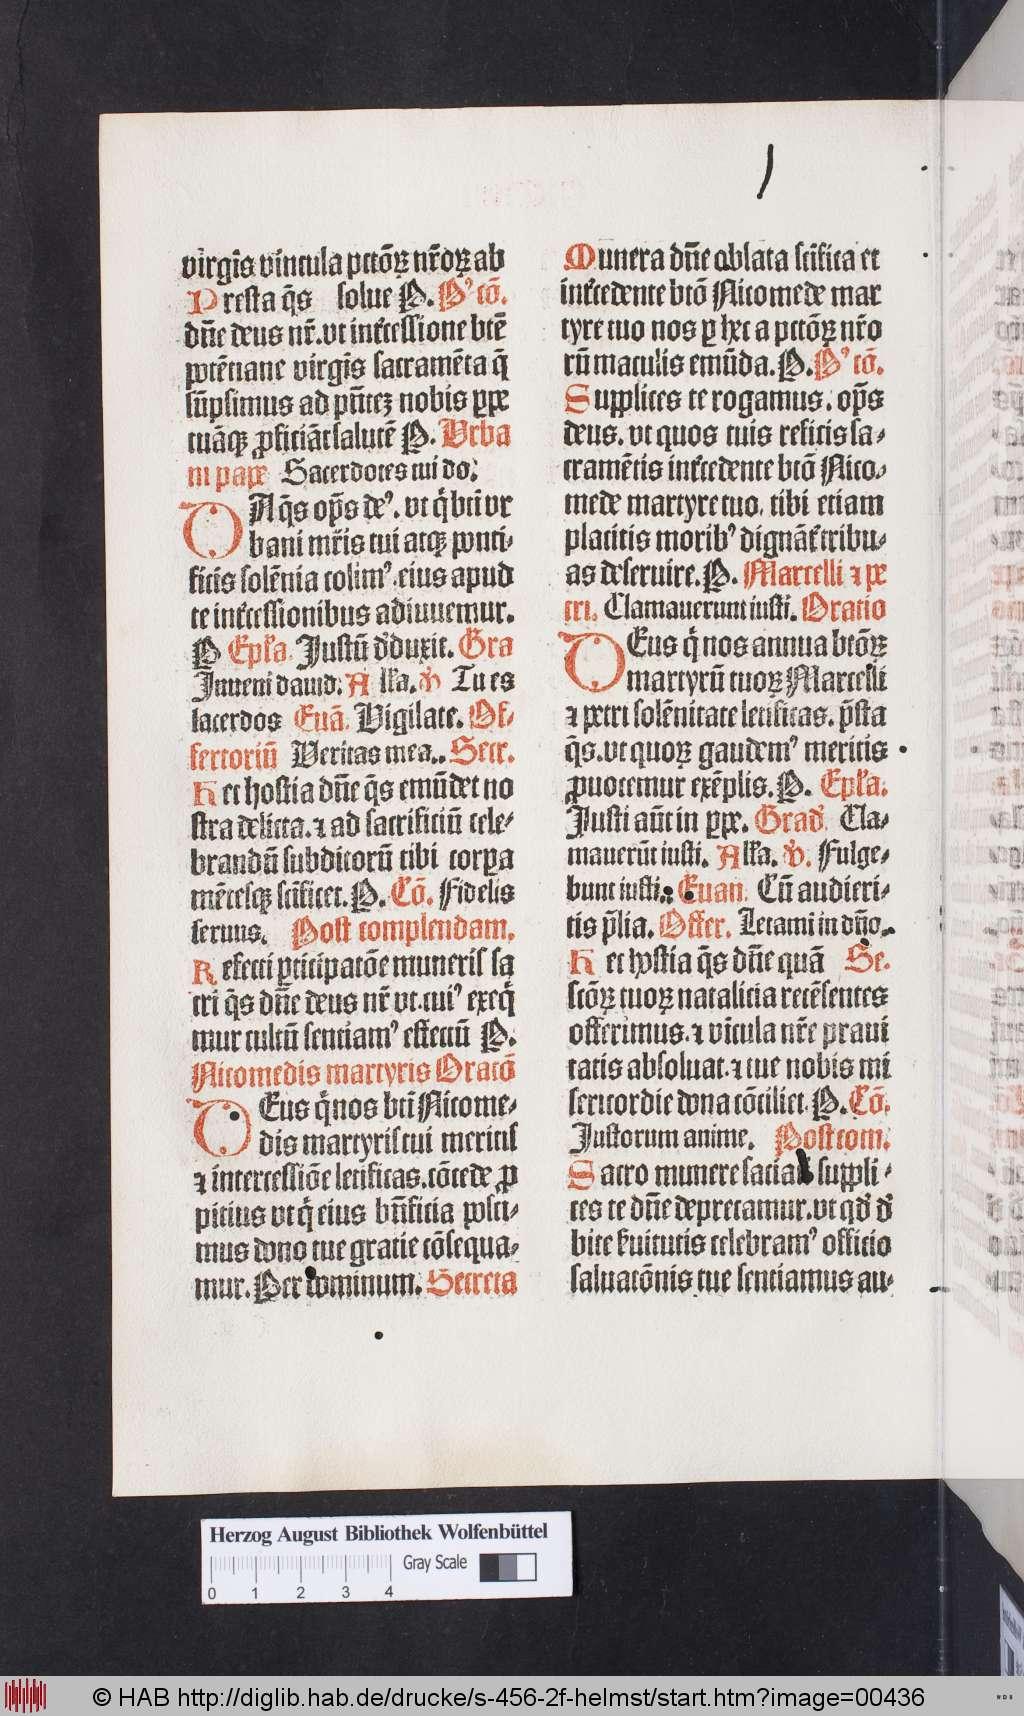 virgīs vincula pctōꝝ nr̄oꝝ ab
Presta q̄s solue P. P' cō.
dn̄e deus nr̄. vt int̄cessione btē
potētiane virgīs sacramēta q̄
sūpsimus ad pn̄tez nobis ꝑpe
tuāqꝫ ꝓficiāt salutē P. Vrba
ni pape Sacerdotes tui do:
DA q̄s op̄s de', vt q' bt̄i vr
bani mr̄is tui atqꝫ ponti-
ficis solēnia colim', eius apud
te int̄cessionibus adiuuemur.
P Epl'a. Justū d'duxit. Gra
Inueni dauid. All'a. v Tu es
sacerdos Euā. Vigilate. Of-
fertoriū Veritas mea.. Secr.
Hec hostia dn̄e q̄s emūdet no
stra delicta. ⁊ ad sacrificiū cele-
brandū subditorū tibi corpa
mētesqꝫ sc̄ificet. P. Cō. Fidelis
seruus. Post complendam.
Refecti ꝑticipatōe muneris sa
cri q̄s dn̄e deus nr̄ vt. cui' exeq'
mur cultū sentiam' effectū P.
Nicomedis martyris Oratō
DEus q' nos bt̄i Nicome-
dis martyris tui meritis
⁊ intercessiōe letificas. cōcede ꝓ
pitius vt q' eius bn̄ficia posci-
mus dono tue gratie cōsequa-
mur. Per dominum. Secreta
Munera dn̄e oblata sc̄ifica et
int̄cedente btō Nicomede mar
tyre tuo nos ꝑ hec a pctōꝝ nr̄o
rū maculis emūda. P. P' cō.
Supplices te rogamus. op̄s
deus. vt quos tuis reficis sa-
cramētis int̄cedente btō Nico-
mede martyre tuo, tibi etiam
placitis morib' dignāt̄ tribu-
as deseruire. P. Marcelli ⁊ pe
tri. Clamauerunt iusti. Oratio
DEus q' nos annua btōꝝ
martyrū tuoꝝ Marcelli
⁊ petri solēnitate letificas. p̄sta
q̄s. vt quoꝝ gaudem' meritis
ꝓuocemur exēplis. P. Epl'a.
Justi aūt in ꝑpe. Grad' Cla-
mauerūt iusti. All'a. v. Fulge-
bunt iusti. Euan. Cū audieri-
tis p̄lia. Offer. Letami in dn̄o.
Hec hostia q̄s dn̄e quā Se.
sctōꝝ tuoꝝ natalicia recēsentes
offerimus. ⁊ vīcula nr̄e praui
tatis absoluat. ⁊ tue nobis mi
sericordie dona cōciliet. P. Cō.
Justorum anime. Postcom.
Sacro munere saciati suppli-
ces te dn̄e deprecamur. vt qd' d'
bite s'uitutis celebram' officio
saluatōnis tue sentiamus au-
Herzog August Bibliothek Wolfenbüttel
Gray Scale
0 1 2 3 4
© HAB http://diglib.hab.de/drucke/s-456-2f-helmst/start.htm?image=00436